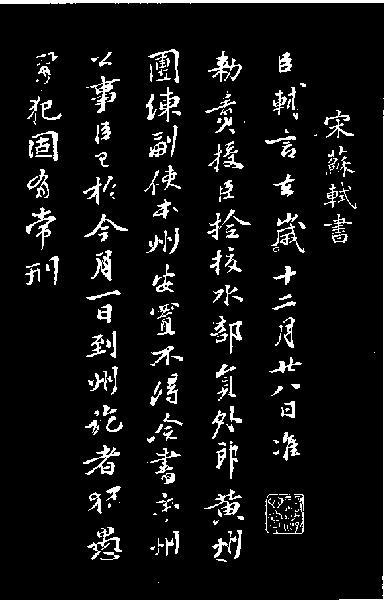 宋蘇軾書
臣軾言去歲十二月廿八日准
勅責授臣撿挍水部員外郎黄州
團練副使本州安置不得佥書本州
公事臣已於今月一日到州訖者狂愚
冒犯固有常刑